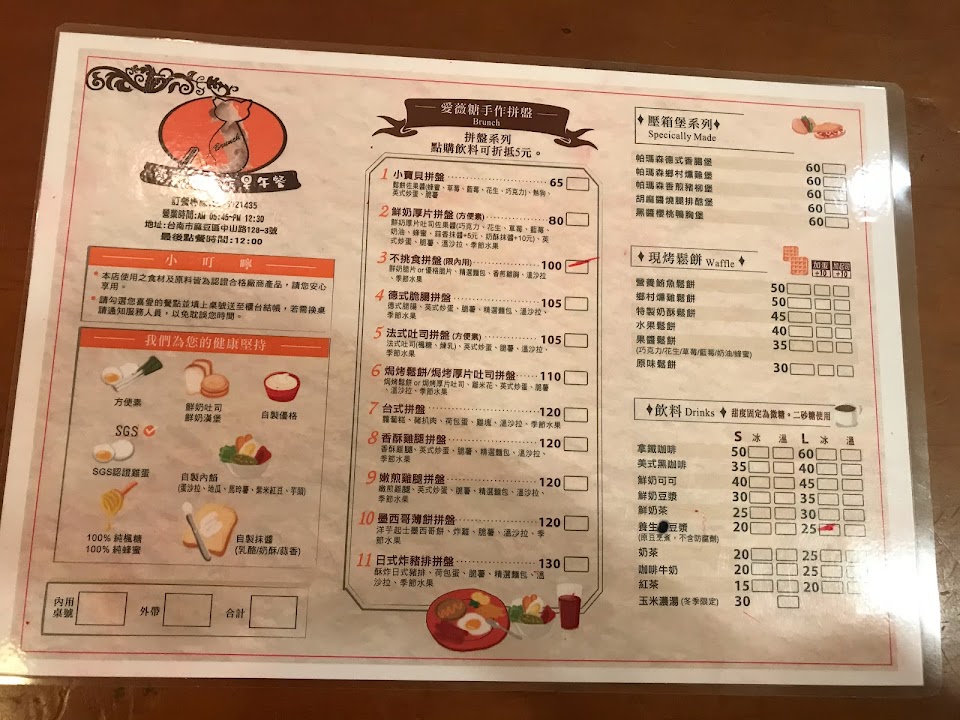 Brunch
早午餐
21435
營業時間:AM 05:45-PM 12:30
地址:台南市麻豆區中山路128-3號
最後點餐時間:12:00
小叮嚀
本店使用之食材及原料皆為認證合格廠商產品，請您安心
享用。
請勾選您喜愛的餐點並填上桌號送至櫃台結帳，若需換桌
請通知服務人員，以免耽誤您時間。
我們為您的健康堅持
方便素
鮮奶吐司
鮮奶漢堡
自製優格
SGS
SGS認證雞蛋
自製內餡
(蛋沙拉、地瓜、馬玲薯、紫米紅豆、芋頭)
100% 純楓糖
100% 純蜂蜜
自製抹醬
(乳酪/奶酥/蒜香)
內用
桌號
外帶
合計
愛薇糖手作拼盤
Brunch
拼盤系列
點購飲料可折抵5元。
1 小寶貝拼盤 65
鬆餅佐果醬(蜂蜜、草莓、藍莓、花生、巧克力)、熱狗、
英式炒蛋、脆薯
2 鮮奶厚片拼盤 (方便素) 80
鮮奶厚片吐司佐果醬(巧克力、花生、草莓、藍莓、
奶油、蜂蜜、蒜香抹醬+5元、奶酥抹醬+10元)、英
式炒蛋、脆薯、溫沙拉、季節水果
3 不挑食拼盤 (限內用) 100
鮮奶脆片 or 優格脆片、精選麵包、香煎雞胸、溫沙拉、
季節水果
4 德式脆腸拼盤 105
德式脆腸、英式炒蛋、脆薯、精選麵包、溫沙拉、
季節水果
5 法式吐司拼盤 (方便素) 105
法式吐司(楓糖、煉乳)、英式炒蛋、脆薯、溫沙拉、
季節水果
6 焗烤鬆餅/焗烤厚片吐司拼盤 110
焗烤鬆餅 or 焗烤厚片吐司、雞米花、英式炒蛋、脆薯
、溫沙拉、季節水果
7 台式拼盤 120
蘿蔔糕、豬扒肉、荷包蛋、雞塊、溫沙拉、季節水果
8 香酥雞腿拼盤 120
香酥雞腿、英式炒蛋、脆薯、精選麵包、溫沙拉、
季節水果
9 嫩煎雞腿拼盤 120
嫩煎雞腿、英式炒蛋、脆薯、精選麵包、溫沙拉、
季節水果
10 墨西哥薄餅拼盤 120
洋芋起士墨西哥餅、炸雞、脆薯、溫沙拉、季節
水果
11 日式炸豬排拼盤 120
酥炸日式豬排、荷包蛋、脆薯、精選麵包、溫
沙拉、季節水果
壓箱堡系列
Specically Made
帕瑪森德式香腸堡 60
帕瑪森鄉村燻雞堡 60
帕瑪森香煎豬柳堡 60
胡麻醬燒腿排酷堡 60
黑醬櫻桃鴨胸堡 60
現烤鬆餅 Waffle
營養鮪魚鬆餅 50
鄉村燻雞鬆餅 50
特製奶酥鬆餅 45
水果鬆餅 40
果醬鬆餅 35
(巧克力/花生/草莓/藍莓/奶油/蜂蜜)
原味鬆餅 30
飲料 Drinks 甜度固定為微糖。二砂糖使用
S 冰 溫 L 冰 溫
拿鐵咖啡 50 60
美式黑咖啡 35 40
鮮奶可可 40 45
鮮奶豆漿 30 35
鮮奶茶 25 30
養生 豆漿 20 25
(原豆烹煮，不含防腐劑)
奶茶 20 25
咖啡牛奶 20 25
紅茶 15 20
玉米濃湯 (冬季限定) 30